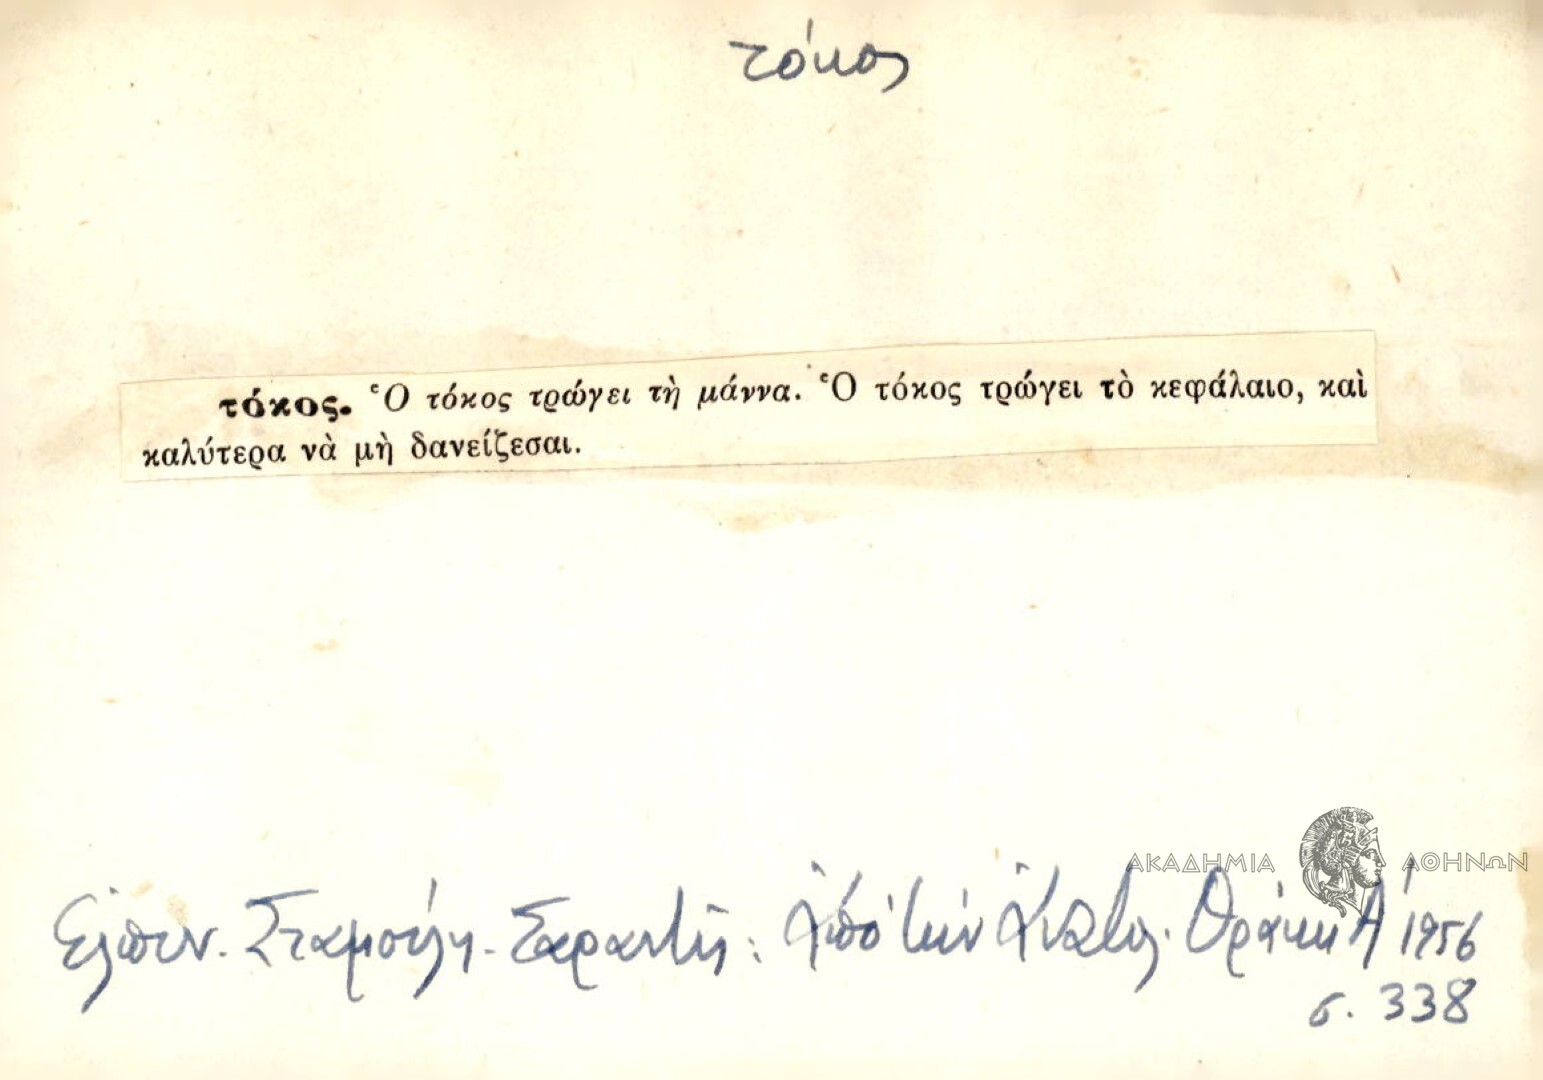 τόκος
τόκος. Ὁ τόκος τρώγει τὴ μάννα. Ὁ τόκος τρώγει τὸ κεφάλαιο, καὶ
καλύτερα νὰ μὴ δανείζεσαι.
ΑΚΑΔΗΜΙΑ ΑΘΗΝΩΝ
Ἐλπιν. Σταμούλη - Σαραντῆ: Ἀπὸ τὴν Ἀνατολ. Θράκη Α' 1956
σ. 338